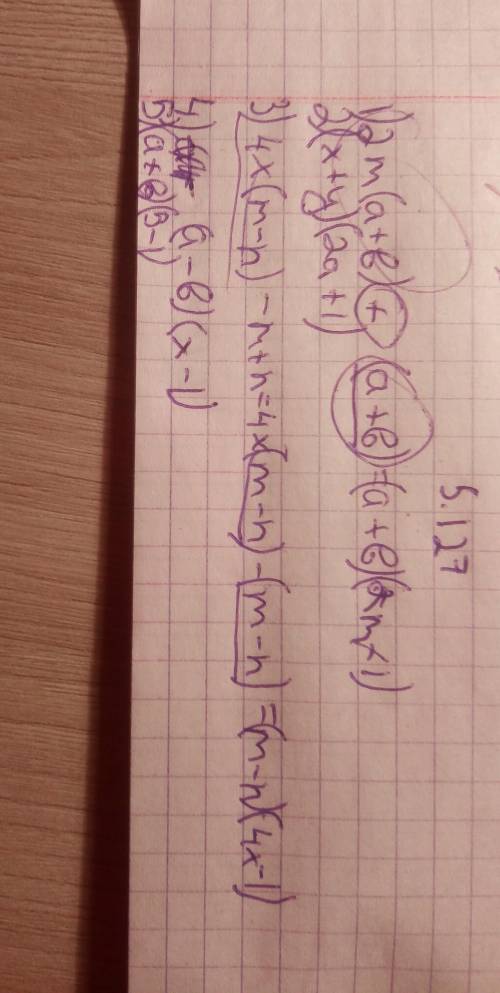 5.127
1) 2m(a+b) + (a+b) = (a+b)(2m+1)
2) (x+y)(2a+1)
3) 4x(m-n) - m+n = 4x(m-n) - (m-n) = (m-n)(4x-1)
4) (a-b)(x-1)
5) (a+b)(3-1)